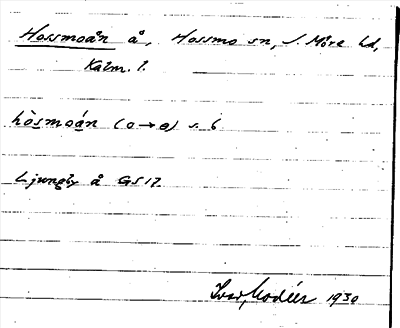 Hossmoån å, Hossmo sn, S. Möre hd,
Kalm. l.
hòsmoán (o→ɵ) s. 6
Ljungby å GS17.
Ivar Modéer 1930